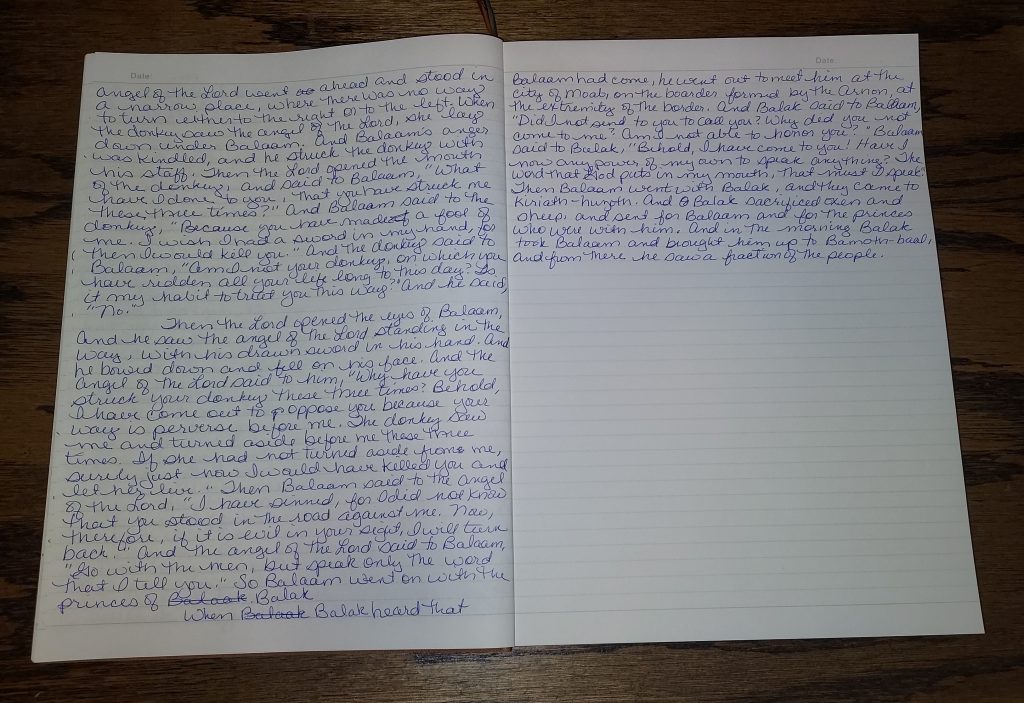 Date:
angel of the Lord went ahead and stood in
a narrow place, where there was no way
to turn either to the right or to the left. When
the donkey saw the angel of the Lord, she lay
down under Balaam. And Balaam's anger
was kindled, and he struck the donkey with
his staff. Then the Lord opened the mouth
of the donkey, and said to Balaam, "What
have I done to you, that you have struck me
these three times?" And Balaam said to the
donkey, "Because you have made a fool of
me. I wish I had a sword in my hand, for
then I would kell you." And the donkey said to
Balaam, "Am I not your donkey, on which you
have ridden all your life long to this day? Is
it my habit to treat you this way?" And he said,
"No."
Then the Lord opened the eyes of Balaam,
And he saw the angel of the Lord standing in the
way, with his drawn sword in his hand. And
he bowed down and fell on his face. And the
angel of the Lord said to him, "Why have you
struck your donkey these three times? Behold,
I have come out to oppose you because your
way is perverse before me. The donkey saw
me and turned aside before me these three
times. If she had not turned aside from me,
surely just now I would have killed you and
let her live." Then Balaam said to the angel
of the Lord, "I have sinned, for I did not know
that you stood in the road against me. Now,
therefore, if it is evil in your sight, I will turn
back." And the angel of the Lord said to Balaam,
"Go with the men, but speak only the word
that I tell you." So Balaam went on with the
princes of Balaak Balak
When Balaak Balak heard that
Date:
Balaam had come, he went out to meet him at the
city of Moab, on the boarder formed by the Arnon, at
the extremity of the border. And Balak said to Balaam,
"Did I not send to you to call you? Why did you not
come to me? Am I not able to honor you?" Balaam
said to Balak, "Behold, I have come to you! Have I
now any power of my own to speak anything? The
word that God puts in my mouth, that must I speak."
Then Balaam went with Balak, and they came to
Kiriath-huzoth. And Balak sacrificed oxen and
sheep, and sent for Balaam and for the princes
who were with him. And in the morning Balak
took Balaam and brought him up to Bamoth-baal,
and from there he saw a fraction of the people.